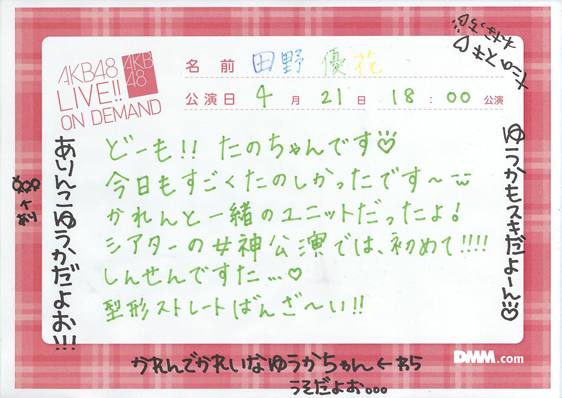 AKB48
LIVE!!
ON DEMAND
AKB
48
名前 田野 優花
公演日 4月 21日 18:00 公演
どーも!! たのちゃんです♡
今日もすごくたのしかったです〜
かれんと一緒のユニットだったよ!
シアターの女神公演では、初めて!!!!
しんせんですた…♡
型形ストレートばんざ〜い!!
ありんこゆうかだよお!!!
ゆうかもスキだよーん♡
かれんでかれいなゆうかちゃん←わら
うそだよお...
DMM.com